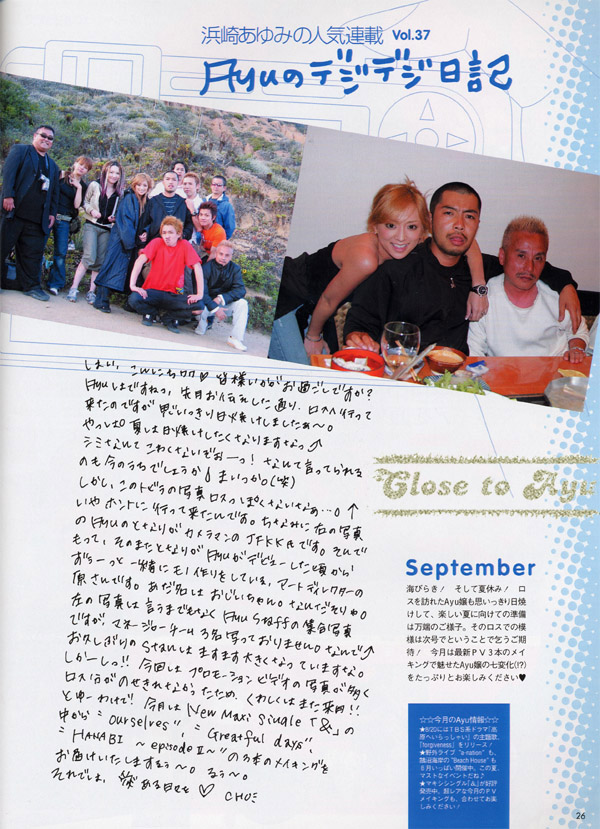 浜崎あゆみの人気連載 Vol.37
Ayuのデジデジ日記
はい、こんにちわ♡皆様いかがお過ごしですか?
Ayuはですねっ、先月お伝えした通り、ロスへ行って
来たのですが思いっきり日焼けしましたぁ〜。
やっぱ夏は日焼けしたくなりますなっ↗
シミなんてこわくないぞおーっ!なんて言ってられる
のも今のうちでしょうか まいっか(笑)
しかし、このトビラの写真ロスっぽくないなぁ…。↑
いやホントに行って来たんです。ちなみに右の写真
のAyuのとなりがカメラマンのJFKK氏です。そんで
もって、そのまたとなりがAyuがデビューした頃から
ずぅーっと一緒にモノ作りをしている、アートディレクターの
原さんです。あだ名はおじいちゃん。なんイジそりゃ。
左の写真は言うまでもなくAyu Staffの集合写真
ですが、マネージャーチーム3名写っておりません。なんで↗
お久しぶりのStanはますます大きくなっていますな。
しかーしっ!!今回はプロモーションビデオの写真が多く
ロス分がのせきれなかったため、くわしくはまた来月!!
とゆーわけで!今月はNew Maxi Single「&」の
中から"ourselves","Greatful days",
"HANABI 〜episode II〜"の3本のメイキングを
お届けいたしますぅ〜。るぅ〜。
それでは、笑ある日々を♡ CHU
Close to Ayu
September
海びらき! そして夏休み! ロ
スを訪れたAyu嬢も思いっきり日焼
けして、楽しい夏に向けての準備
は万端のご様子。そのロスでの模
様は次号でということで乞うご期
待! 今月は最新PV3本のメイ
キングで魅せたAyu嬢の七変化(!?)
をたっぷりとお楽しみください♥
☆☆今月のAyu情報☆☆
★8/20にはTBS系ドラマ「高
原へいらっしゃい」の主題歌、
「forgiveness」をリリース!
★野外ライブ"a-nation"も、
鵠沼海岸の"Beach House"も
8月いっぱい開催中。この夏、
マストなイベントだね♪
★マキシシングル「&」が好評
発売中。超レアな今月のPV
メイキングも、合わせてお楽
しみください!
26